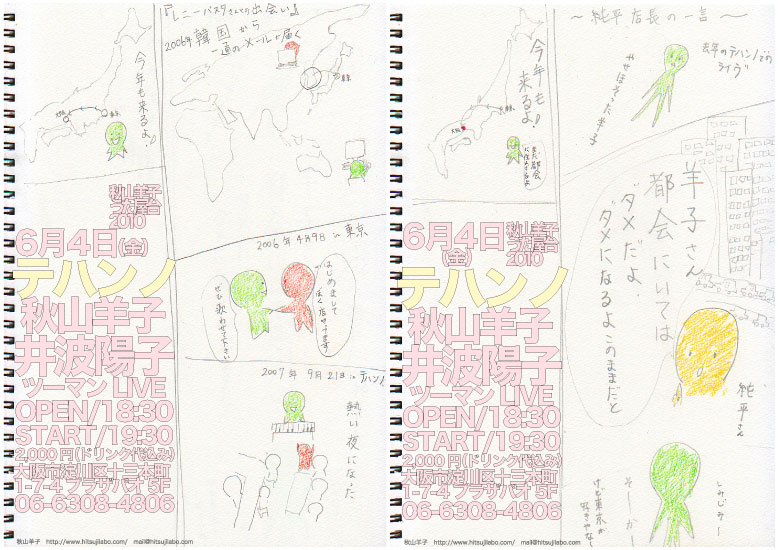 今年も来るよ♪
大阪
東京
『レニーバスタさんとの出会い』
2006年 韓国から
一通のメールが届く
東京
秋山羊子
うた屋台
2010
6月4日(金)
テハンノ
秋山羊子
井波陽子
ツーマン LIVE
OPEN/18:30
START/19:30
2,000円(ドリンク代込み)
大阪市淀川区十三本町
1-7-4 プラザパオ 5F
06-6308-4806
2006年 4月9日 in 東京
はじめまして
ぼく店やってます
ぜひ歌わせて下さい
2007年 9月21日 in テハンノ
熱い夜になった
秋山羊子 http://www.hitsujilabo.com/ mail@hitsujilabo.com
今年も
来るよ♪
大阪
東京
まだ都会
に住んでるよ
〜純平店長の一言〜
去年のテハンノでの
ライヴ
やせほそった羊子
羊子さん
都会にいては
ダメだよ.
ダメになるよこのままだと
純平さん
秋山羊子
うた屋台
2010
6月4日
(金)
テハンノ
秋山羊子
井波陽子
ツーマン LIVE
OPEN/18:30
START/19:30
2,000円(ドリンク代込み)
大阪市淀川区十三本町
1-7-4 プラザパオ 5F
06-6308-4806
しみじみ〜
そーかー
けど東京が
好きやな〜
秋山羊子 http://www.hitsujilabo.com/ mail@hitsujilabo.com